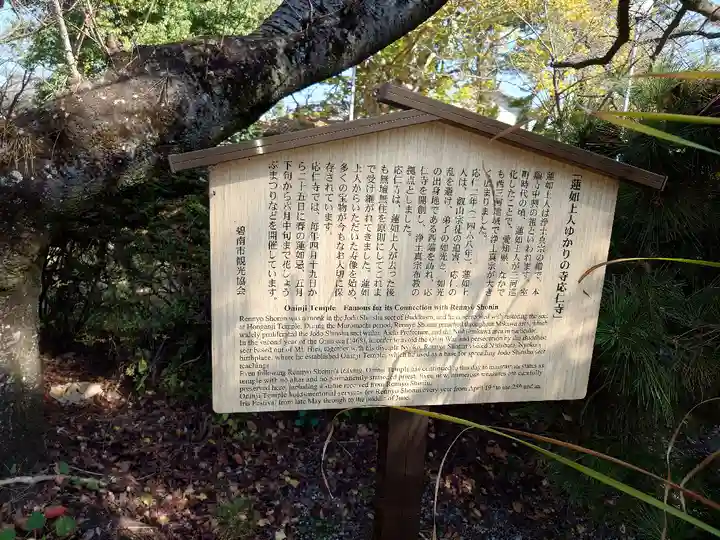 「蓮如上人ゆかりの寺応仁寺」
蓮如上人は浄土真宗の僧で、本
願寺中興の祖といわれます。室
町時代の頃、蓮如上人が三河巡
化したことで、愛知県、なかで
も西三河地域で浄土真宗が大き
く広まりました。
応仁二年(一四六八年)、蓮如上
人は、叡山宗徒の迫害、応仁の
乱を避け、弟子の如光と、如光
の出身地である西端を訪れ、応
仁寺を開創し、浄土真宗布教の
拠点としました。
応仁寺は、蓮如上人が立った後
も無壇無住を原則にしてこれま
で受け継がれてきました。蓮如
上人からいただいた寿像を始め、
多くの宝物が今もなお大切に保
存されています。
応仁寺では、毎年四月十九日か
ら二十五日に春の蓮如忌、五月
下旬から六月中旬まで花しょう
ぶまつりなどを開催しています。
碧南市観光協会
Oninji Temple Famous for its Connection with Rennyo Shonin
Rennyo Shonin was a monk in the Jodo Shinshu sect of Buddhism, and he is credited with restoring the sect
of Honganji Temple. During the Muromachi period, Rennyo Shonin preached throughout Mikawa area, which
widely proliferated the Jodo Shinshu sect within Aichi Prefecture, and the Nishimikawa area in particular.
In the second year of the Onin era (1468), in order to avoid the Onin War and persecution by the Buddhist
sect based out of Mt. Hiei, together with his disciple Nyoko, Rennyo Shonin visited Nishibata, Nyoko's
birthplace, where he established Oninji Temple, which he used as a base for spreading Jodo Shinshu sect
teachings.
Even following Rennyo Shonin's leaving, Oninji Temple has continued to this day to maintain its status as
temple with no altar and no permanently stationed priest. Even now, numerous treasures are carefully
preserved here, including a statue received from Rennyo Shonin.
Oninji Temple holds memorial services for Rennyo Shonin every year from April 19th to 25th and an
Iris Festival from late May through to the middle of June.